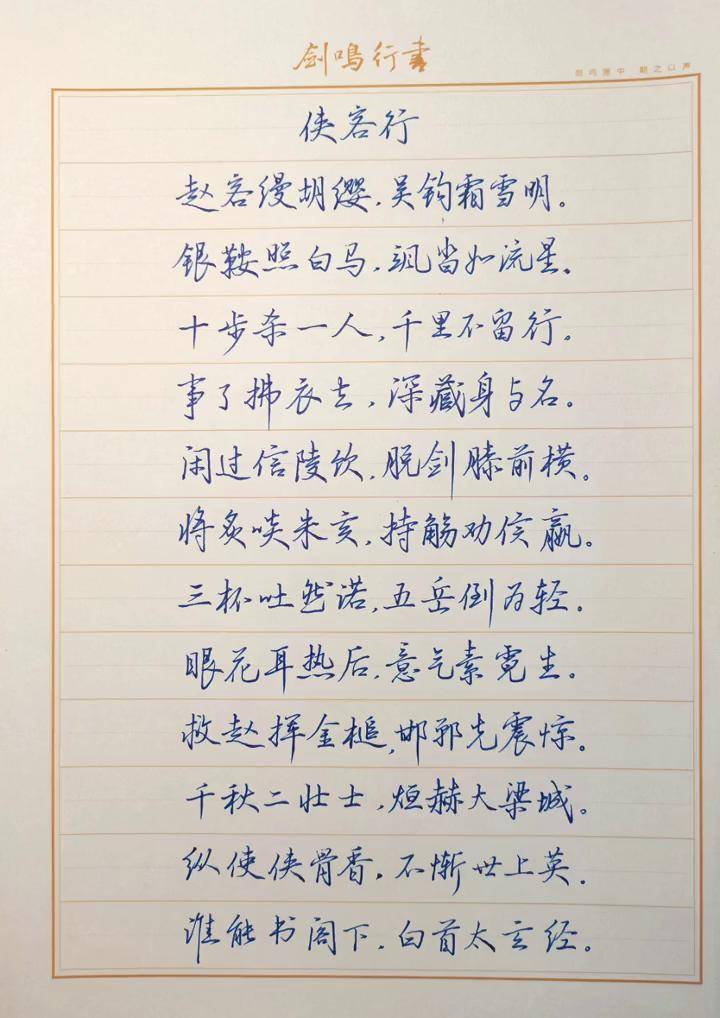 剑鸣行书
侠客行
赵客缦胡缨，吴钩霜雪明。
银鞍照白马，飒沓如流星。
十步杀一人，千里不留行。
事了拂衣去，深藏身与名。
闲过信陵饮，脱剑膝前横。
将炙啖朱亥，持觞劝侯嬴。
三杯吐然诺，五岳倒为轻。
眼花耳热后，意气素霓生。
救赵挥金槌，邯郸先震惊。
千秋二壮士，烜赫大梁城。
纵使侠骨香，不惭世上英．
谁能书阁下，白首太玄经。